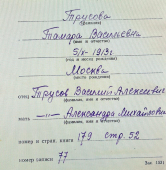 Трусова
(фамилия)
Тамара Васильевна
(имя и отчество)
5/X - 1913 г.
(год и место рождения)
Москва
место рождения
отец Трусов Василий Алексеевич
(фамилия, имя и отчество)
мать —"— Александра Михайловна
(фамилия, имя и отчество)
номер и стран. книги 179 стр. 52
номер записи 77
Зак. 1021